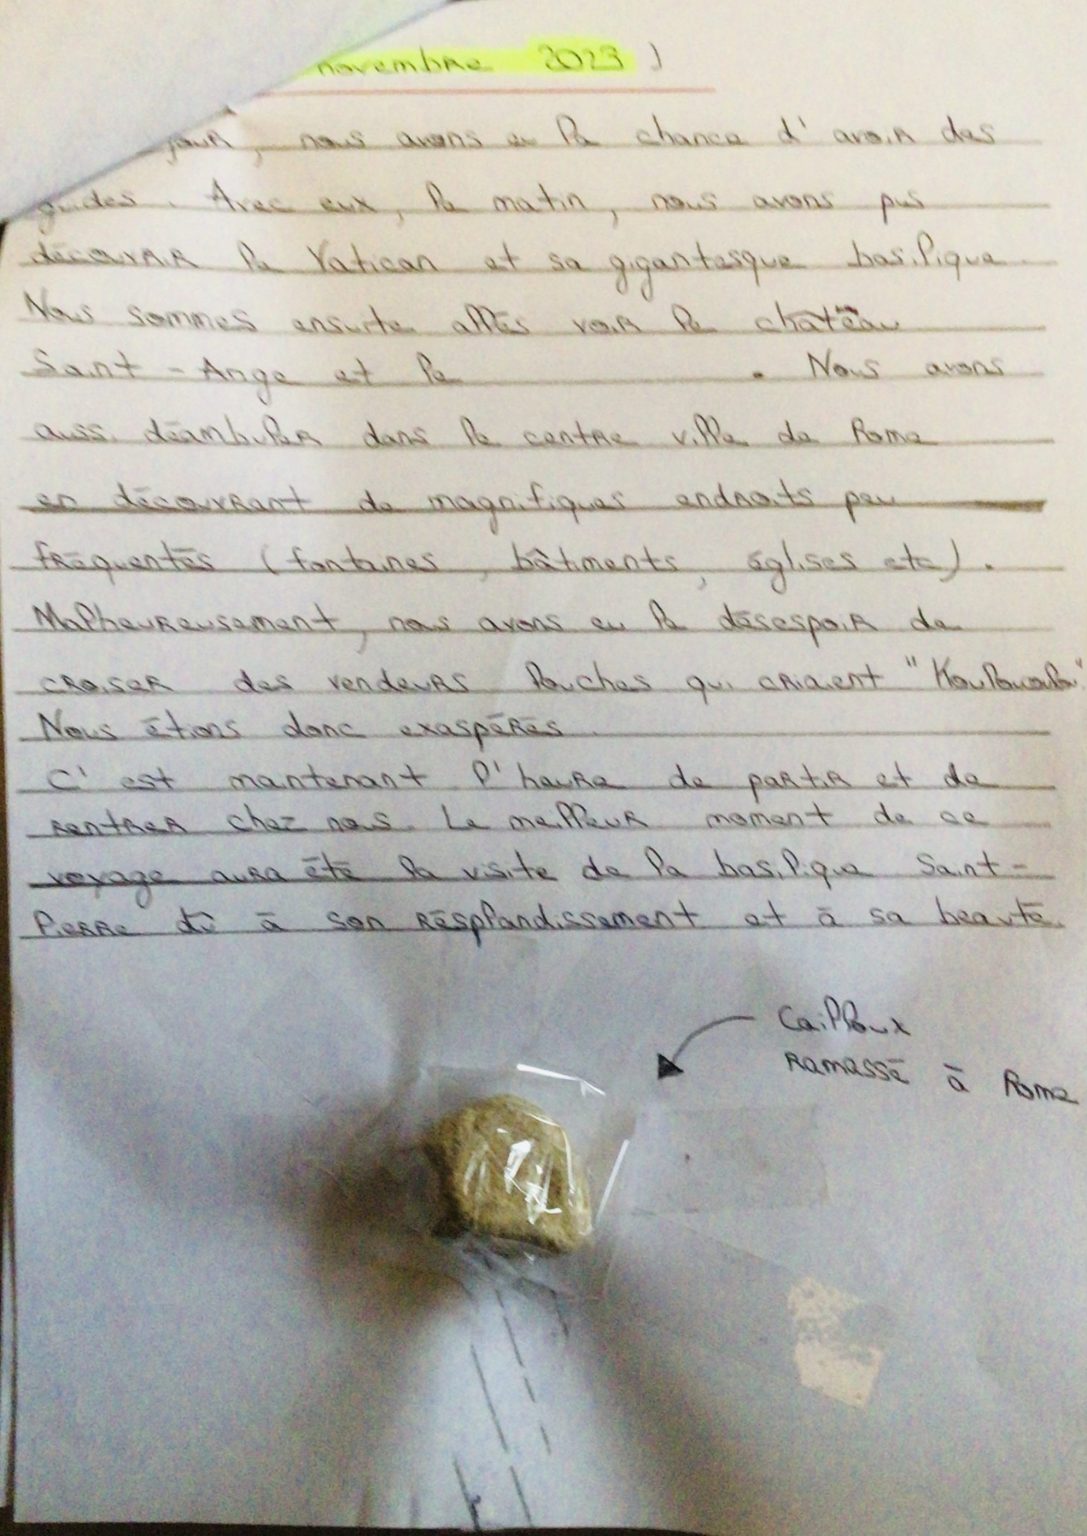 novembre 2023 )
jour, nous avons eu la chance d'avoir des
guides. Avec eux, le matin, nous avons pus
découvrir le Vatican et sa gigantesque basilique.
Nous sommes ensuite allés voir le château
Saint-Ange et le . Nous avons
aussi déambuler dans le centre ville de Rome
en découvrant de magnifiques endroits peu
fréquentés (fontaines, bâtiments, églises etc).
Malheureusement, nous avons eu le désespoir de
croiser des vendeurs louches qui criaient
Nous étions donc exaspérés.
C'est maintenant l'heure de partir et de
rentrer chez nous. Le meilleur moment de ce
voyage aura été la visite de la basilique Saint-
Pierre dû à son resplandissement et à sa beauté.
Cailloux
ramassé à Rome